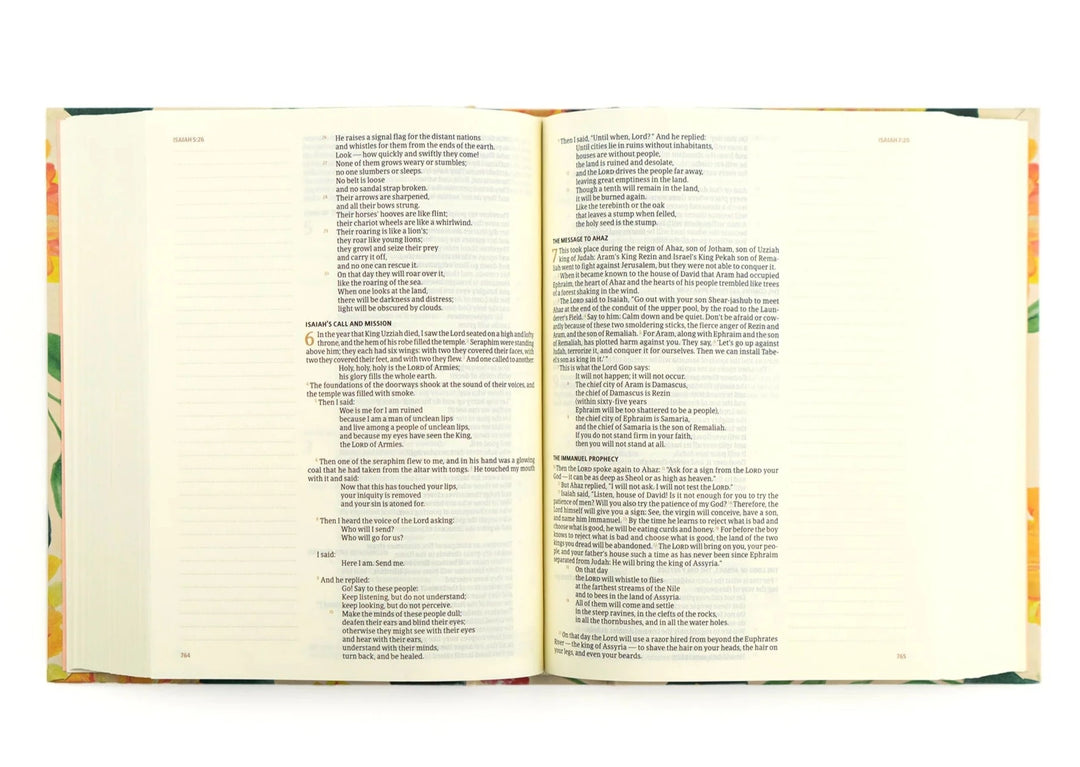 ISAIAH 5:26
26 He raises a signal flag for the distant nations
and whistles for them from the ends of the earth.
Look — how quickly and swiftly they come!
27 None of them grows weary or stumbles;
no one slumbers or sleeps.
No belt is loose
and no sandal strap broken.
28 Their arrows are sharpened,
and all their bows strung.
Their horses' hooves are like flint;
their chariot wheels are like a whirlwind.
29 Their roaring is like a lion's;
they roar like young lions;
they growl and seize their prey
and carry it off,
and no one can rescue it.
30 On that day they will roar over it,
like the roaring of the sea.
When one looks at the land,
there will be darkness and distress;
light will be obscured by clouds.
ISAIAH'S CALL AND MISSION
6 In the year that King Uzziah died, I saw the Lord seated on a high and lofty
throne, and the hem of his robe filled the temple. 2 Seraphim were standing
above him; they each had six wings: with two they covered their faces, with
two they covered their feet, and with two they flew. 3 And one called to another:
Holy, holy, holy is the LORD of Armies;
his glory fills the whole earth.
4 The foundations of the doorways shook at the sound of their voices, and
the temple was filled with smoke.
5 Then I said:
Woe is me for I am ruined
because I am a man of unclean lips
and live among a people of unclean lips,
and because my eyes have seen the King,
the LORD of Armies.
6 Then one of the seraphim flew to me, and in his hand was a glowing
coal that he had taken from the altar with tongs. 7 He touched my mouth
with it and said:
Now that this has touched your lips,
your iniquity is removed
and your sin is atoned for.
8 Then I heard the voice of the Lord asking:
Who will I send?
Who will go for us?
I said:
Here I am. Send me.
9 And he replied:
Go! Say to these people:
Keep listening, but do not understand;
keep looking, but do not perceive.
10 Make the minds of these people dull;
deafen their ears and blind their eyes;
otherwise they might see with their eyes
and hear with their ears,
understand with their minds,
turn back, and be healed.
764
ISAIAH 7:20
11 Then I said, "Until when, Lord?" And he replied:
Until cities lie in ruins without inhabitants,
houses are without people,
the land is ruined and desolate,
12 and the LORD drives the people far away,
leaving great emptiness in the land.
13 Though a tenth will remain in the land,
it will be burned again.
Like the terebinth or the oak
that leaves a stump when felled,
the holy seed is the stump.
THE MESSAGE TO AHAZ
7 This took place during the reign of Ahaz, son of Jotham, son of Uzziah
king of Judah: Aram's King Rezin and Israel's King Pekah son of Rema-
liah went to fight against Jerusalem, but they were not able to conquer it.
2 When it became known to the house of David that Aram had occupied
Ephraim, the heart of Ahaz and the hearts of his people trembled like trees
of a forest shaking in the wind.
3 The LORD said to Isaiah, "Go out with your son Shear-jashub to meet
Ahaz at the end of the conduit of the upper pool, by the road to the Laun-
derer's Field. 4 Say to him: Calm down and be quiet. Don't be afraid or cow-
ardly because of these two smoldering sticks, the fierce anger of Rezin and
Aram, and the son of Remaliah. 5 For Aram, along with Ephraim and the son
of Remaliah, has plotted harm against you. They say, 6 'Let's go up against
Judah, terrorize it, and conquer it for ourselves. Then we can install Tabe-
el's son as king in it.'"
7 This is what the Lord GOD says:
It will not happen; it will not occur.
8 The chief city of Aram is Damascus,
the chief of Damascus is Rezin
(within sixty-five years
Ephraim will be too shattered to be a people),
9 the chief city of Ephraim is Samaria,
and the chief of Samaria is the son of Remaliah.
If you do not stand firm in your faith,
then you will not stand at all.
THE IMMANUEL PROPHECY
10 Then the LORD spoke again to Ahaz: 11 "Ask for a sign from the LORD your
God — it can be as deep as Sheol or as high as heaven."
12 But Ahaz replied, "I will not ask. I will not test the LORD."
13 Isaiah said, "Listen, house of David! Is it not enough for you to try the
patience of men? Will you also try the patience of my God? 14 Therefore, the
Lord himself will give you a sign: See, the virgin will conceive, have a son,
and name him Immanuel. 15 By the time he learns to reject what is bad and
choose what is good, he will be eating curds and honey. 16 For before the boy
knows to reject what is bad and choose what is good, the land of the two
kings you dread will be abandoned. 17 The LORD will bring on you, your peo-
ple, and your father's house such a time as has never been since Ephraim
separated from Judah: He will bring the king of Assyria."
18 On that day
the LORD will whistle to flies
at the farthest streams of the Nile
and to bees in the land of Assyria.
19 All of them will come and settle
in the steep ravines, in the clefts of the rocks,
in all the thornbushes, and in all the water holes.
20 On that day the Lord will use a razor hired from beyond the Euphrates
River — the king of Assyria — to shave the hair on your heads, the hair on
your legs, and even your beards.
765